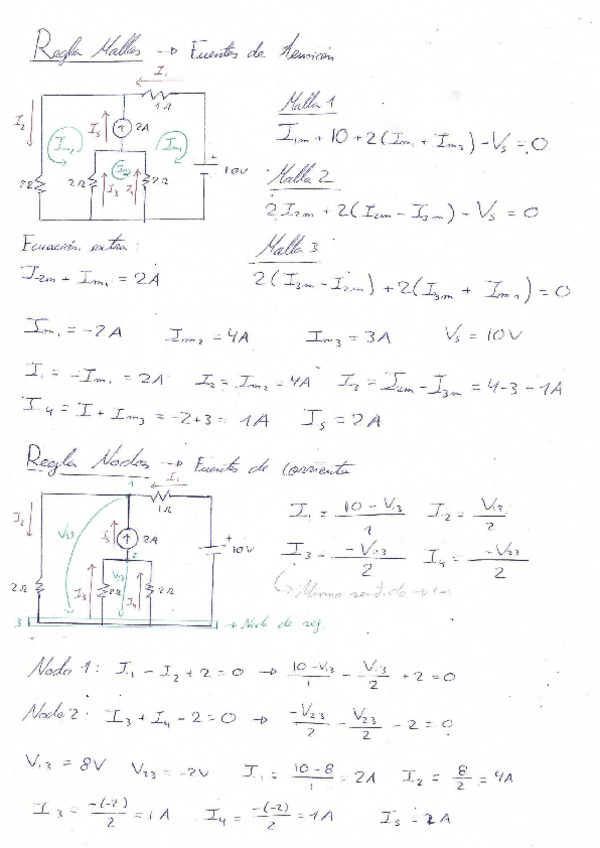 Regla Mallas → Fuentes de tensión
I₁
1Ω
I₂
Im₂
I₅
2A
Im₁
Im₃
10V
2Ω
2Ω
I₃
I₄
2Ω
Malla 1
I₁m + 10 + 2(Im₁ + Im₃) - Vs = 0
Malla 2
2I₂m + 2(I₂m - I₃m) - Vs = 0
Ecuación extra:
Malla 3
I₂m + Im₁ = 2A
2(I₃m - I₂m) + 2(I₃m + Im₁) = 0
Im₁ = -2A Im₂ = 4A Im₃ = 3A Vs = 10V
I₁ = -Im₁ = 2A I₂ = Im₂ = 4A I₃ = I₂m - I₃m = 4-3 = 1A
I₄ = I + Im₃ = -2+3 = 1A I₅ = 2A
Regla Nodos → Fuentes de corriente
1
I₁
1Ω
I₂
V₁₃
I₅
2A
+
10V
2
2Ω
I₃
2Ω
V₂₃
I₄
2Ω
3
→ Nodo de ref.
I₁ = (10 - V₁₃)/1 I₂ = V₁₃/2
I₃ = -V₂₃/2 I₄ = -V₂₃/2
Mismo sentido
Nodo 1: I₁ - I₂ + 2 = 0 → (10 - V₁₃)/1 - V₁₃/2 + 2 = 0
Nodo 2: I₃ + I₄ - 2 = 0 → -V₂₃/2 - V₂₃/2 - 2 = 0
V₁₃ = 8V V₂₃ = -2V I₁ = (10-8)/1 = 2A I₂ = 8/2 = 4A
I₃ = -(-2)/2 = 1A I₄ = -(-2)/2 = 1A I₅ = 2A